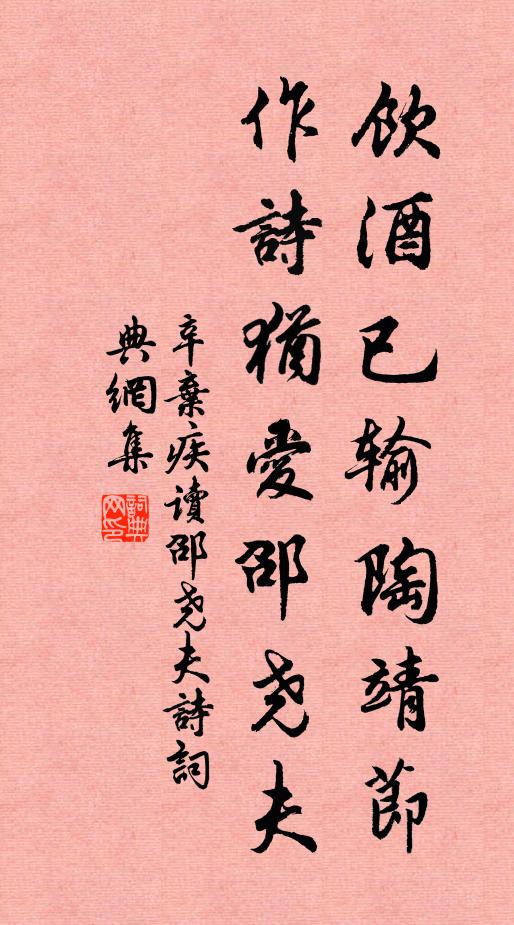 飲酒已输陶靖節
作詩猶愛邵尧夫
辛棄疾读邵尧夫詩詞
典網集
詞典
网印